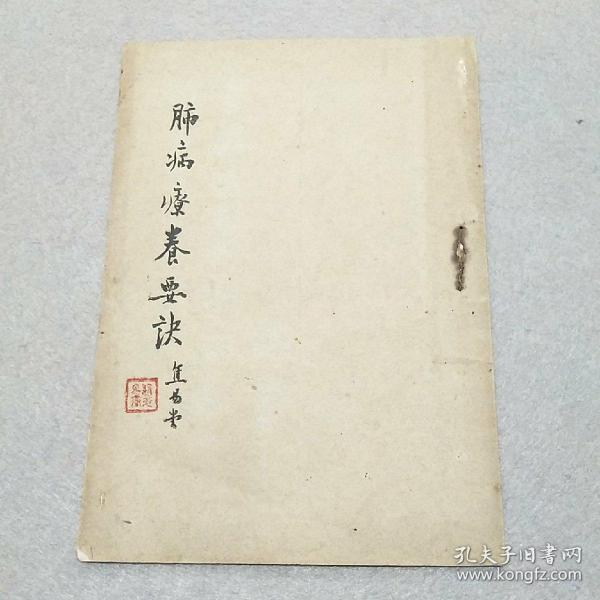 肺病療養要訣
焦易堂
孔夫子旧書网
www.kongfz.com